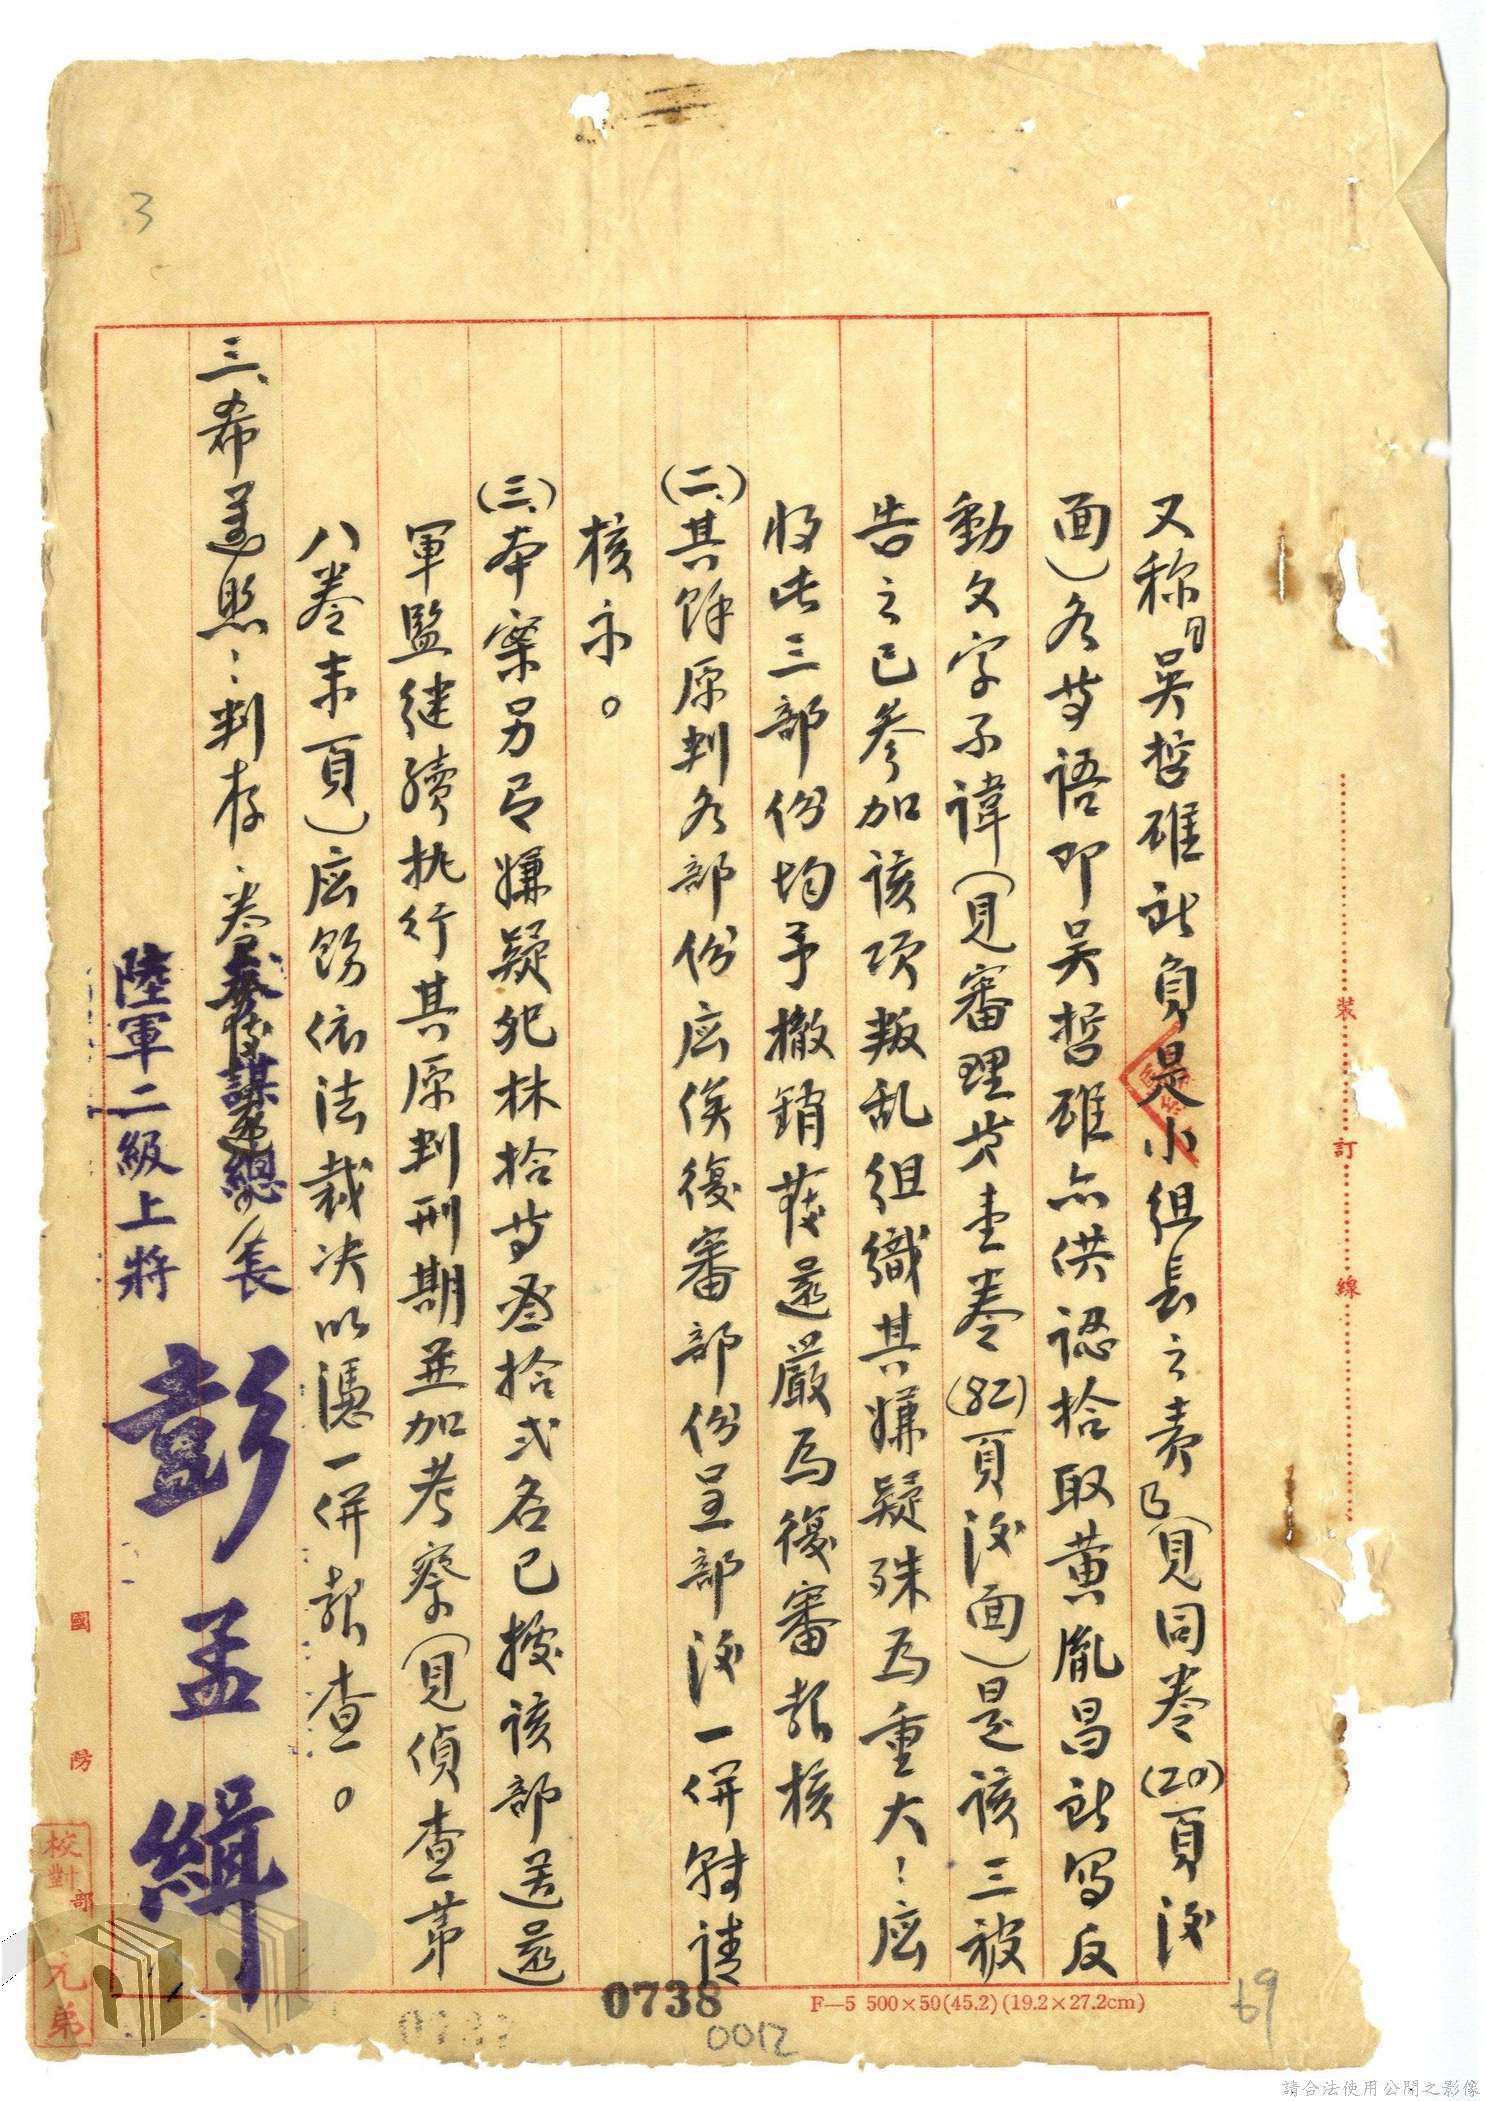 又稱「吳哲雄所負是小組長之責」(見同卷(20)頁後
面)各等語即吳哲雄亦供認拾取黃胤昌所寫反
動文字不諱(見審理第壹卷(82)頁後面)是該三被
告之已參加該項叛乱組織其嫌疑殊為重大！應
將此三部份均予撤銷發還嚴為復審報核
(二)其餘原判各部份應俟復審部份呈部後一併轉請
核示。
(三)本案另有嫌疑犯林拾等叁拾弍名已據該部送還
軍監继續执行其原判刑期並加考察(見偵查第
八卷末頁)應飭依法裁决以憑一併報查。
三、希遵照！判存、卷
參謀總長
陸軍二級上將
彭孟緝
裝 訂 線
國防部
校對
3
0738
0012
F—5 500×50(45.2)(19.2×27.2cm)
69
請合法使用公開之影像